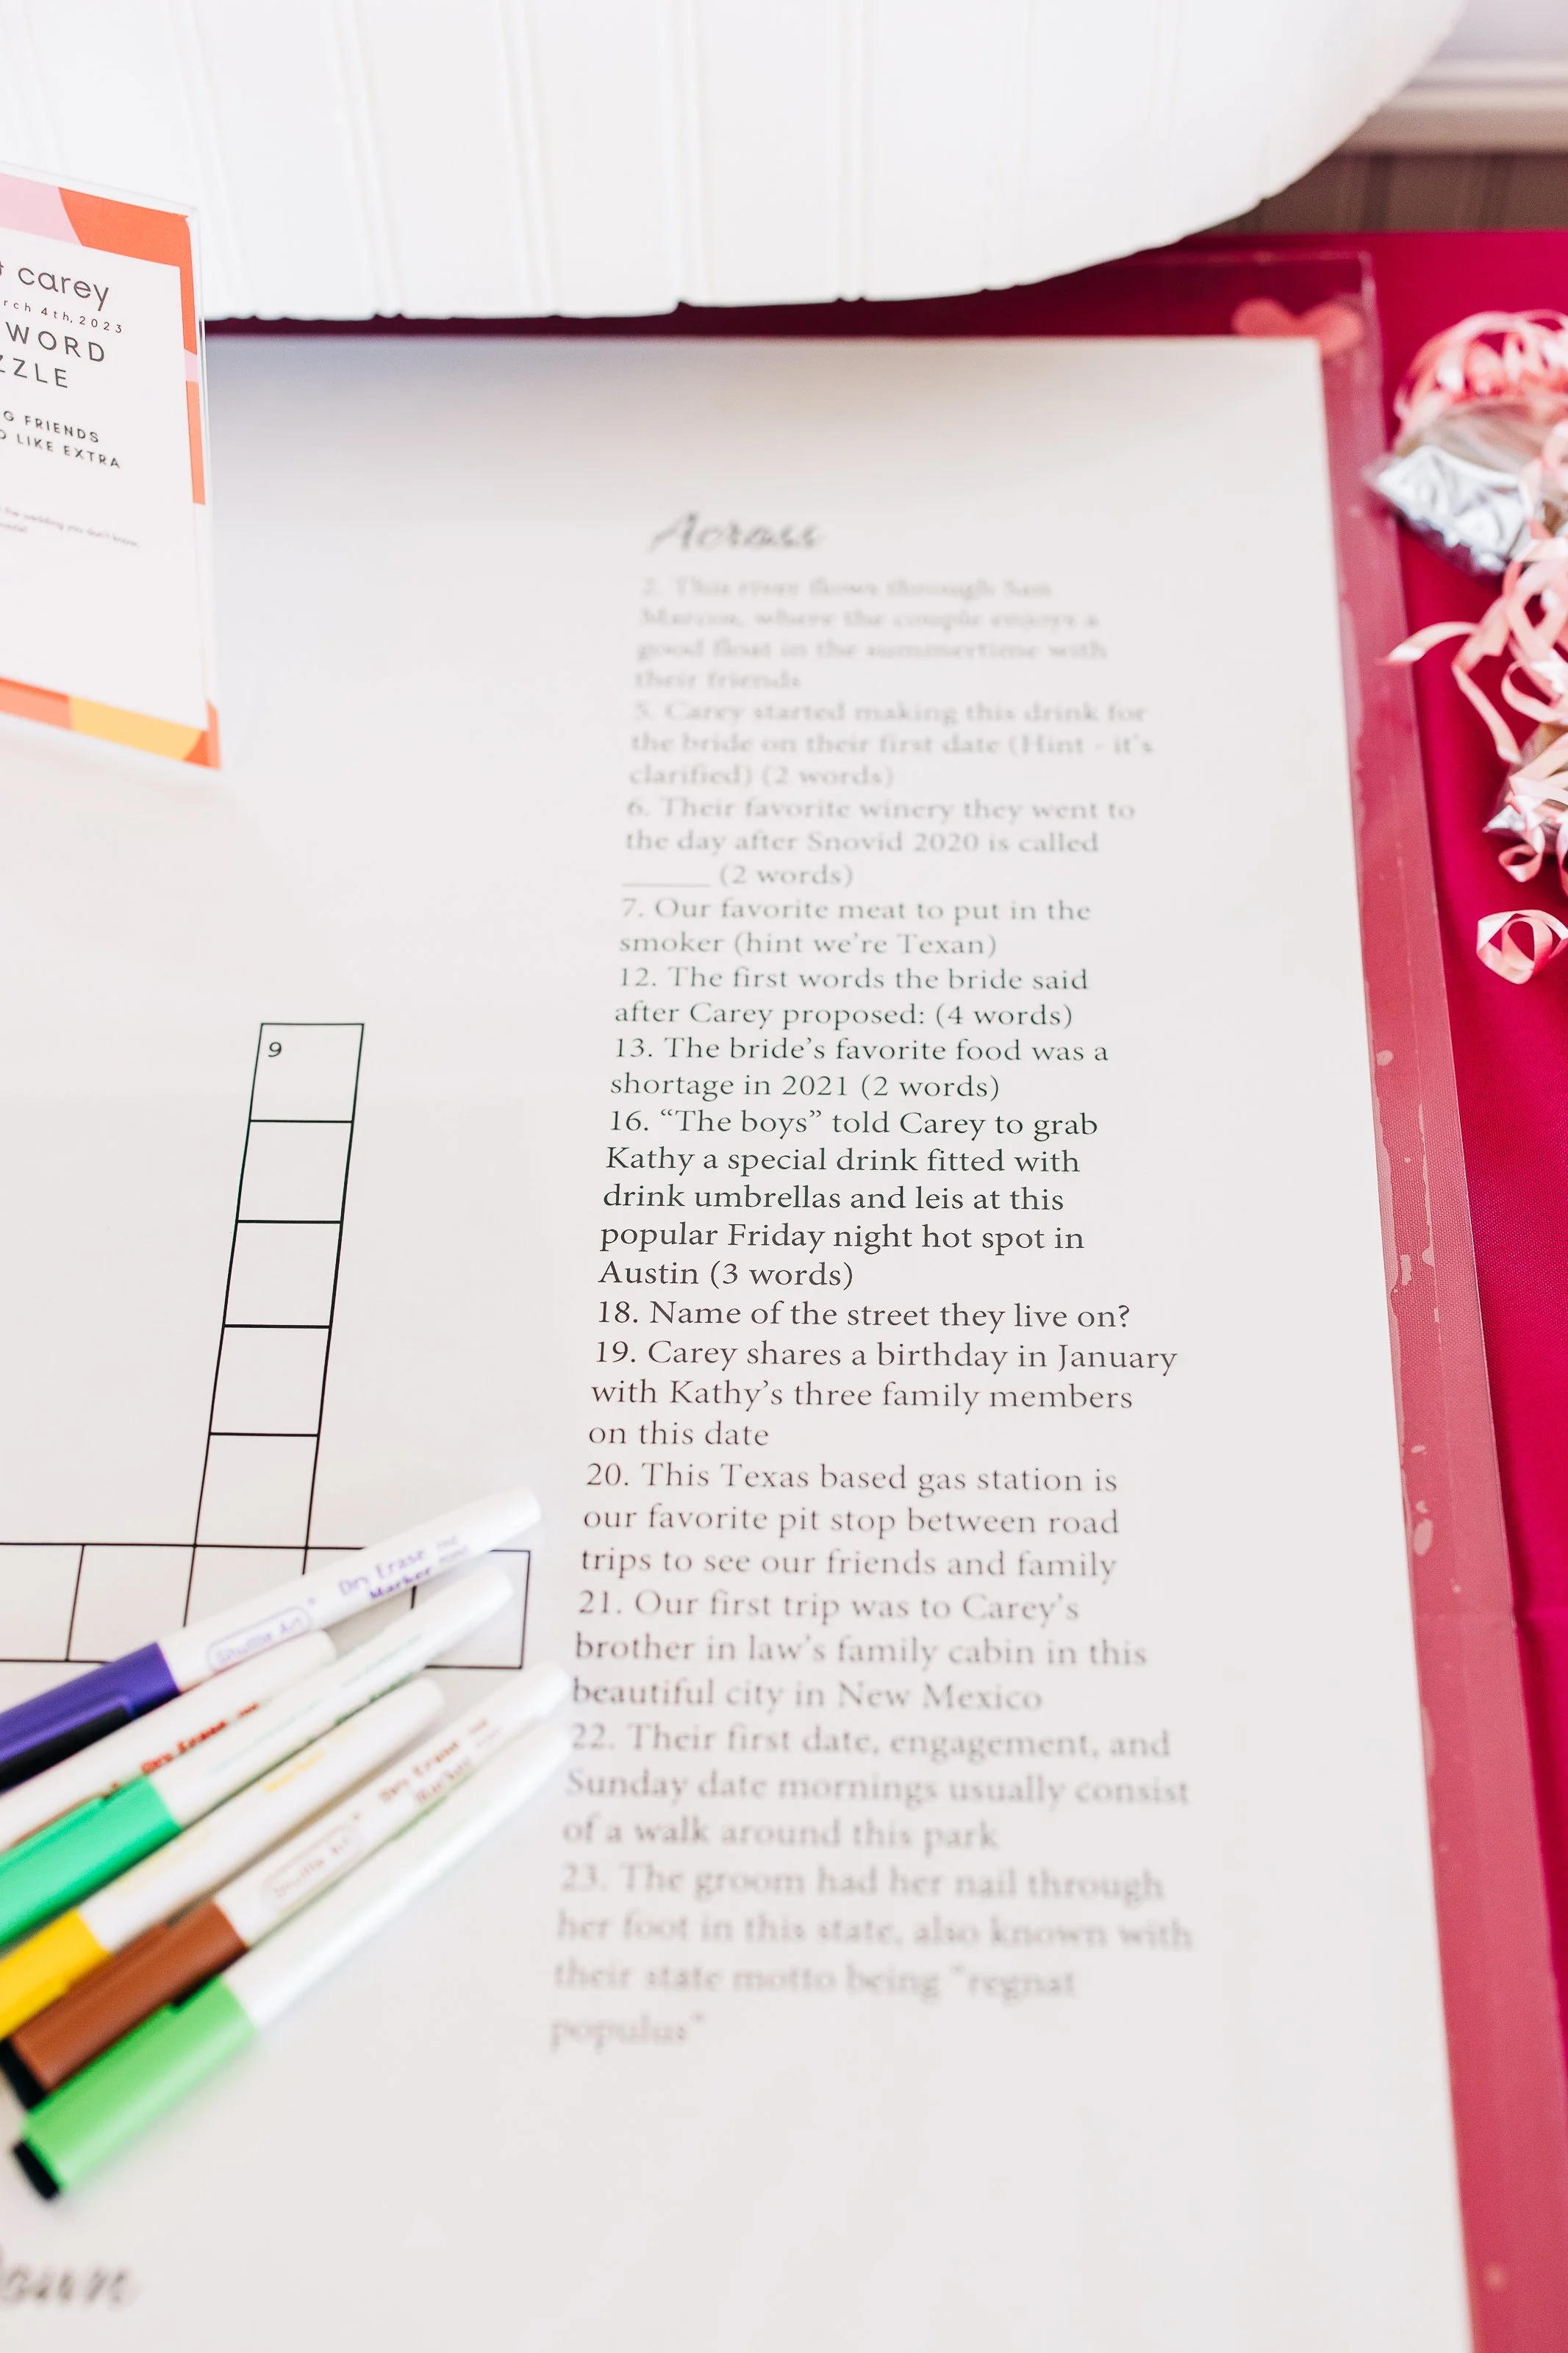 carey
rch 4th, 2023
WORD
ZZLE
G FRIENDS
O LIKE EXTRA
the wedding you don't know,
9
Across
2. This river flows through San
Marcos, where the couple enjoys a
good float in the summertime with
their friends
5. Carey started making this drink for
the bride on their first date (Hint - it's
clarified) (2 words)
6. Their favorite winery they went to
the day after Snovid 2020 is called
______ (2 words)
7. Our favorite meat to put in the
smoker (hint we're Texan)
12. The first words the bride said
after Carey proposed: (4 words)
13. The bride's favorite food was a
shortage in 2021 (2 words)
16. “The boys” told Carey to grab
Kathy a special drink fitted with
drink umbrellas and leis at this
popular Friday night hot spot in
Austin (3 words)
18. Name of the street they live on?
19. Carey shares a birthday in January
with Kathy's three family members
on this date
20. This Texas based gas station is
our favorite pit stop between road
trips to see our friends and family
21. Our first trip was to Carey's
brother in law's family cabin in this
beautiful city in New Mexico
22. Their first date, engagement, and
Sunday date mornings usually consist
of a walk around this park
23. The groom had her nail through
her foot in this state, also known with
their state motto being "regnat
populus"
Shuttle Art
Dry Erase
Marker
Dry Erase
Shuttle Art
Dry Erase
Marker